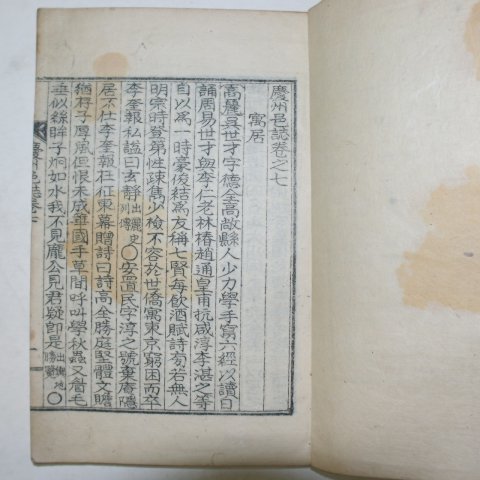 慶州邑誌卷之七
寓居
高麗吳世才字德全高敞縣人少力學手寫六經以讀日
誦周易世才與李仁老林椿趙通皇甫抗咸淳李湛之等
自以爲一時豪俊結爲友稱七賢每飮酒賦詩旁若無人
明宗時登第性疎雋少檢不容於世僑寓東京窮困而卒
李奎報私謚曰玄靜出麗史列傳○安置民字淳之號棄庵隱
居不仕李奎報在征東幕贈詩曰詩高全勝庭堅體文贍
猶存子厚風但恨未成華國手草間呼叫學秋蟲又曰髩毛
垂似絲眸子炯如水我不見龐公見君疑卽是出輿地勝覽○
慶州邑誌卷七
一